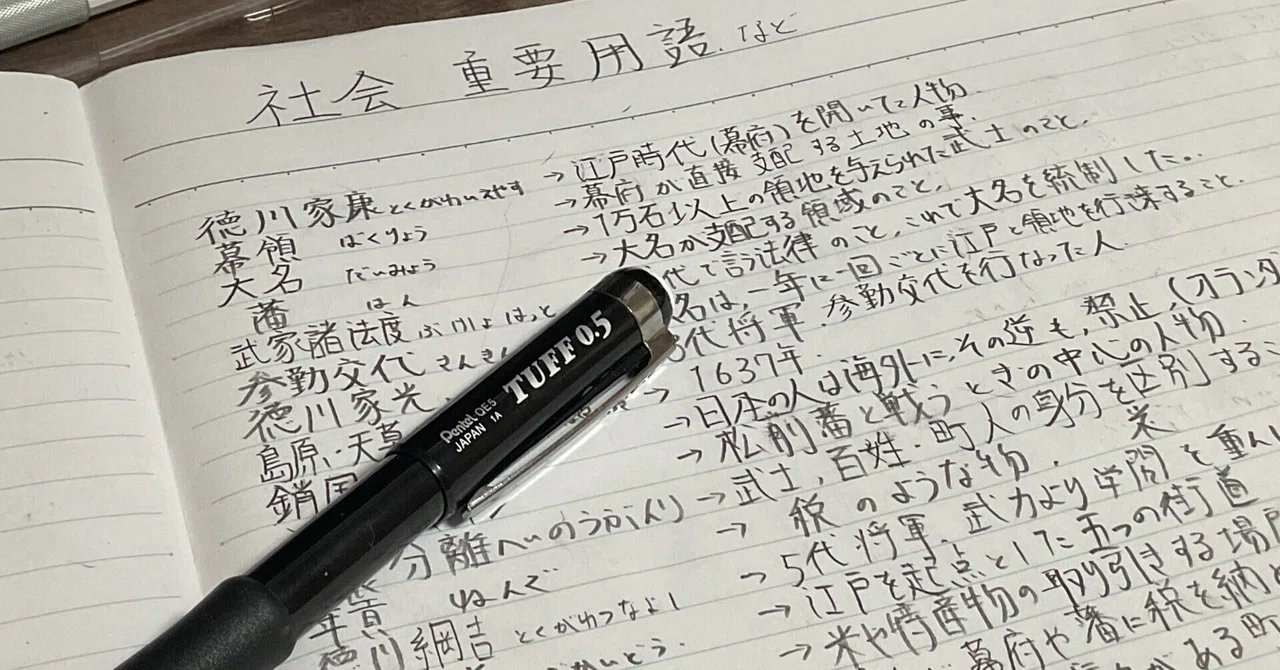 社会 重要用語.など
徳川家康 とくがわいえやす → 江戸時代(幕府)を開いた人物
幕領 ばくりょう → 幕府が直接支配する土地の事.
大名 だいみょう → 1万石以上の領地を与えられた武士のこと.
藩 はん → 大名が支配する領域のこと.
武家諸法度 ぶけしょはっと 代で言う法律のこと,これで大名を統制した.
参勤交代 さんきん 名は,一年に一回ごとに江戸と領地を行き来すること.
徳川家光 3代将軍.参勤交代を行なった人.
島原・天草 → 1637年.
鎖国 → 日本の人は海外に,その逆も,禁止,(オランダ
→ 松前藩と戦うときの中心の人物
分離 へいのうぶんり → 武士,百姓・町人の身分を区別するこ
年貢 ねんぐ → 税のような物. 米
徳川綱吉 とくがわつなよし → 5代将軍.武力より学問を重んじ
→ 江戸を起点とした五つの街道
→ 米や特産物の取り引きする場所
幕府や藩に税を納め
ある町
Pentel OE5
JAPAN 1A
TUFF 0.5